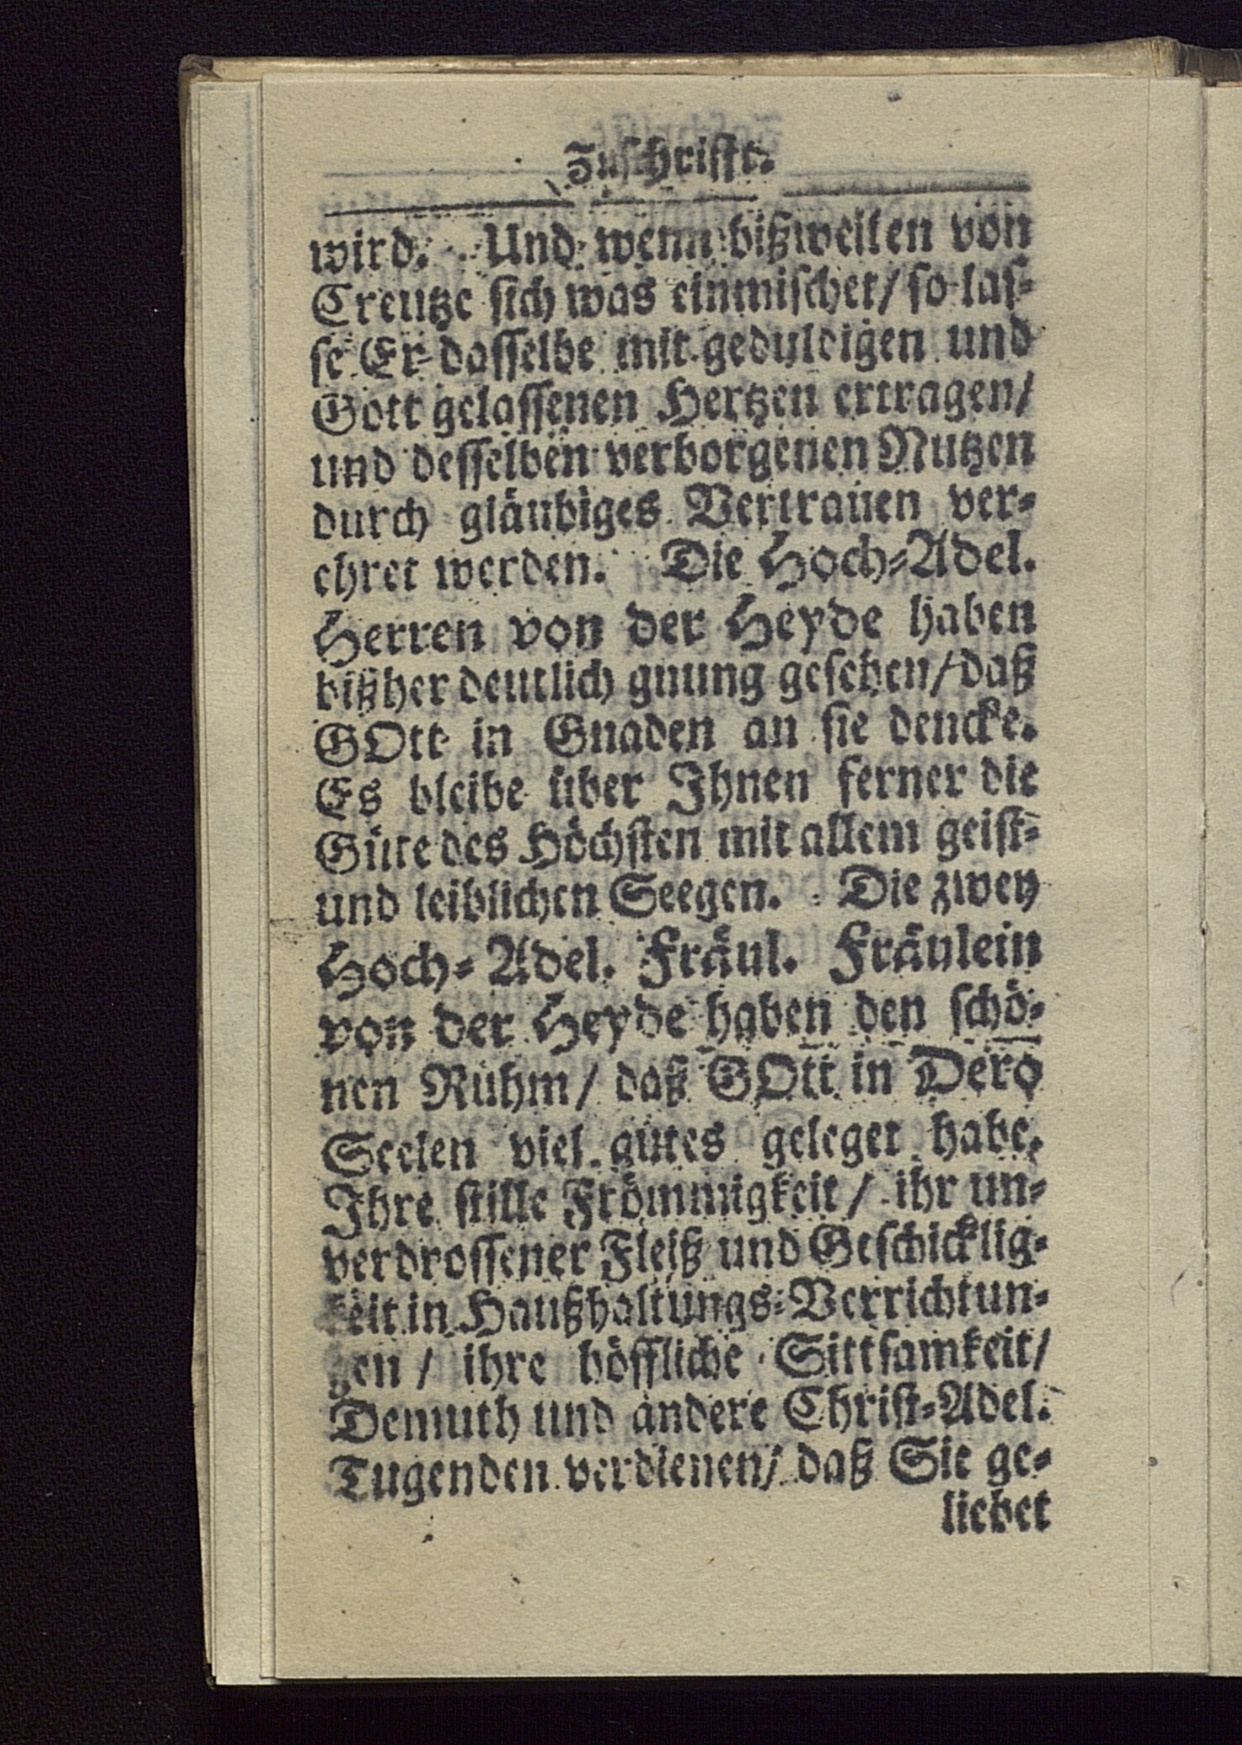 Zuschrifft.
wird. Und wenn bißweilen von
Creutze sich was einmischet/ so las-
se Er dasselbe mit geduldigen und
Gott gelassenen Hertzen ertragen/
und desselben verborgenen Nutzen
durch gläubiges Vertrauen ver-
ehret werden. Die Hoch-Adel.
Herren von der Heyde haben
bißher deutlich gnung gesehen/ daß
GOtt in Gnaden an sie dencke.
Es bleibe über Ihnen ferner die
Güte des Höchsten mit allem geist-
und leiblichen Seegen. Die zwey
Hoch-Adel. Fräul. Fräulein
von der Heyde haben den schö-
nen Ruhm/ daß GOtt in Dero
Seelen viel gutes geleget habe.
Ihre stille Frömmigkeit/ ihr un-
verdrossener Fleiß und Geschicklig-
keit in Haußhaltungs-Verrichtun-
gen/ ihre höffliche Sittsamkeit/
Demuth und andere Christ-Adel.
Tugenden verdienen/ daß Sie ge-
liebet